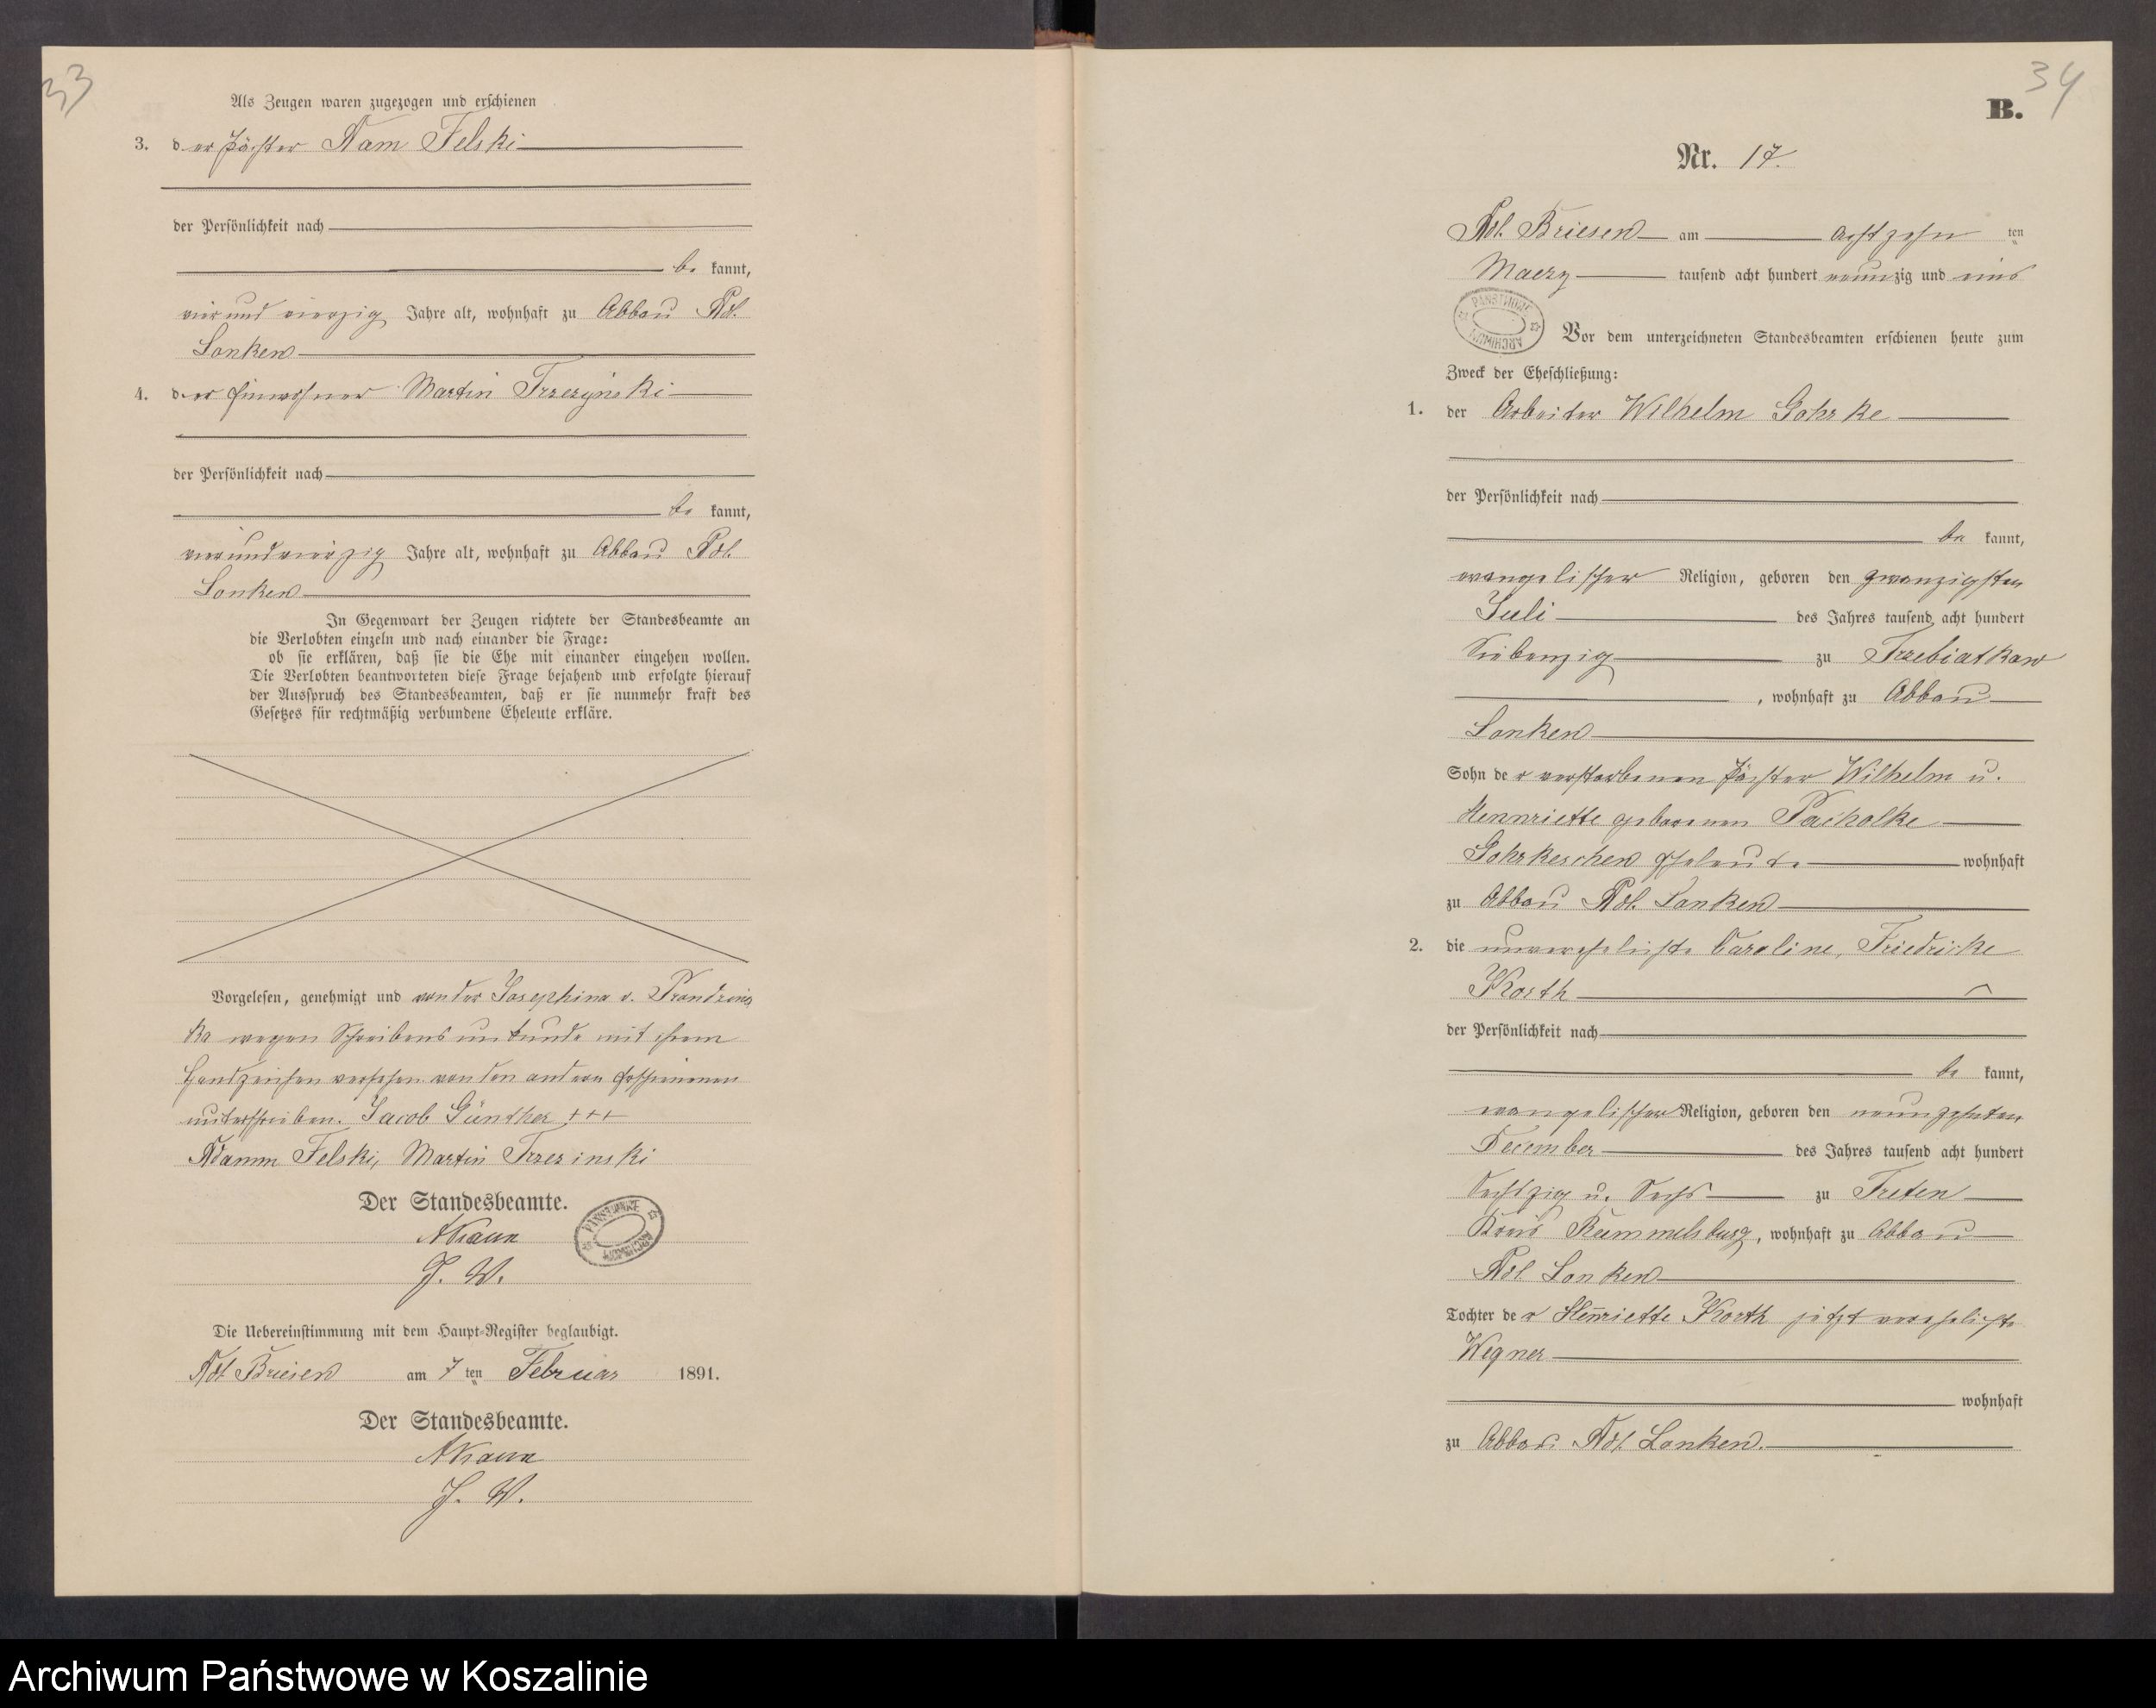 33
Als Zeugen waren zugezogen und erschienen
3. der Pächter Adam Felski
der Persönlichkeit nach
be kannt,
vierund vierzig Jahre alt, wohnhaft zu Abbau Adl.
Lanken
4. der Einwohner Martin Trzezynski
der Persönlichkeit nach
be kannt,
vierundvierzig Jahre alt, wohnhaft zu Abbau Adl.
Lanken
In Gegenwart der Zeugen richtete der Standesbeamte an
die Verlobten einzeln und nach einander die Frage:
ob sie erklären, daß sie die Ehe mit einander eingehen wollen.
Die Verlobten beantworteten diese Frage bejahend und erfolgte hierauf
der Ausspruch des Standesbeamten, daß er sie nunmehr kraft des
Gesetzes für rechtmäßig verbundene Eheleute erkläre.
Vorgelesen, genehmigt und von der Josephina v.
ka wegen Schreibens unkunde mit ihrem
Handzeichen versehen von den andern Erschienenen
unterschrieben. Jacob Günther +++
Adamm Felski, Martin Trzezinski
Der Standesbeamte.
PAŃSTWOWE ARCHIWUM
J. W.
Die Uebereinstimmung mit dem Haupt-Register beglaubigt.
Adl Briesen am 7 ten Februar 1891.
Der Standesbeamte.
J. W.
34
B.
Nr. 17.
Adl. Briesen am achtzehn ten
Maerz tausend acht hundert neunzig und eins
PAŃSTWOWE ARCHIWUM
Vor dem unterzeichneten Standesbeamten erschienen heute zum
Zweck der Eheschließung:
1. der Arbeiter Wilhelm Gohrke
der Persönlichkeit nach
be kannt,
evangelischer Religion, geboren den zwanzigsten
Juli des Jahres tausend acht hundert
Siebenzig zu Trzebiatkow
, wohnhaft zu Abbau
Lanken
Sohn der verstorbenen Pächter Wilhelm u.
Hennriette geborenen Pacholke
Gohrkeschen Eheleute wohnhaft
zu Abbau Adl. Lanken
2. die unverehelichte Caroline, Friedricke
Korth
der Persönlichkeit nach
be kannt,
evangelischer Religion, geboren den neunzehnten
December des Jahres tausend acht hundert
Sechszig u. Sechs zu Treten
Kreis Rummelsburg, wohnhaft zu Abbau
Adl Lanken
Tochter der Henriette Korth jetzt verehelichte
Wegner
wohnhaft
zu Abbau Adl. Lanken.
Archiwum Państwowe w Koszalinie